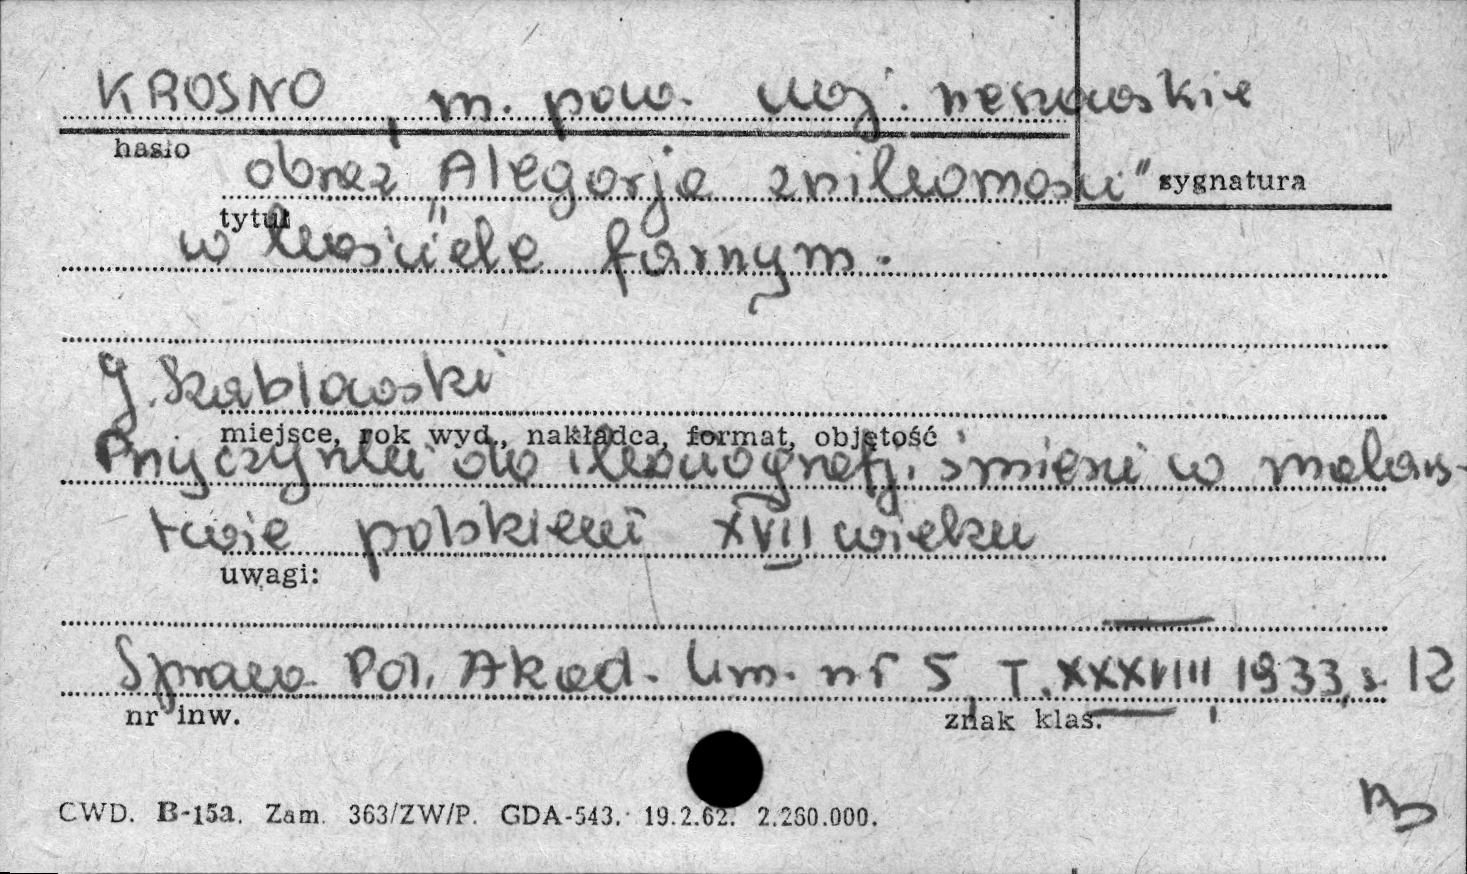 KROSNO, m. pow. woj. rzeszowskie
hasło
obraz „Alegorja znikomości"
sygnatura
tytuł
w kościele farnym.
J. Szablowski
miejsce, rok wyd., nakładca, format, objętość
Przyczynki do ikonografj. śmierci w malars-
twie polskiem XVII wieku
uwagi:
Spraw. Pol. Akad. Um. nr 5, T. XXXVIII, 1933, s. 12
nr inw.
znak klas.
CWD. B-15a. Zam. 363/ZW/P. GDA-543. 19.2.62. 2.260.000.